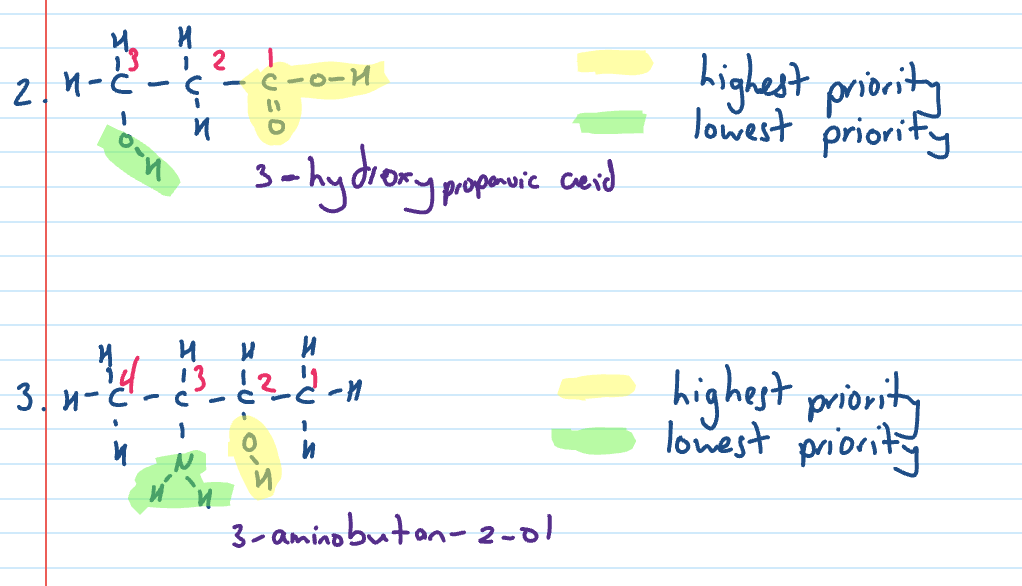 H H
3 2 1
2. H-C-C-C-O-H
O H O
H
3-hydroxypropanoic acid
highest priority
lowest priority
H H H H
4 3 2 1
3. H-C-C-C-C-H
H N O H
H H H
3-aminobutan-2-ol
highest priority
lowest priority